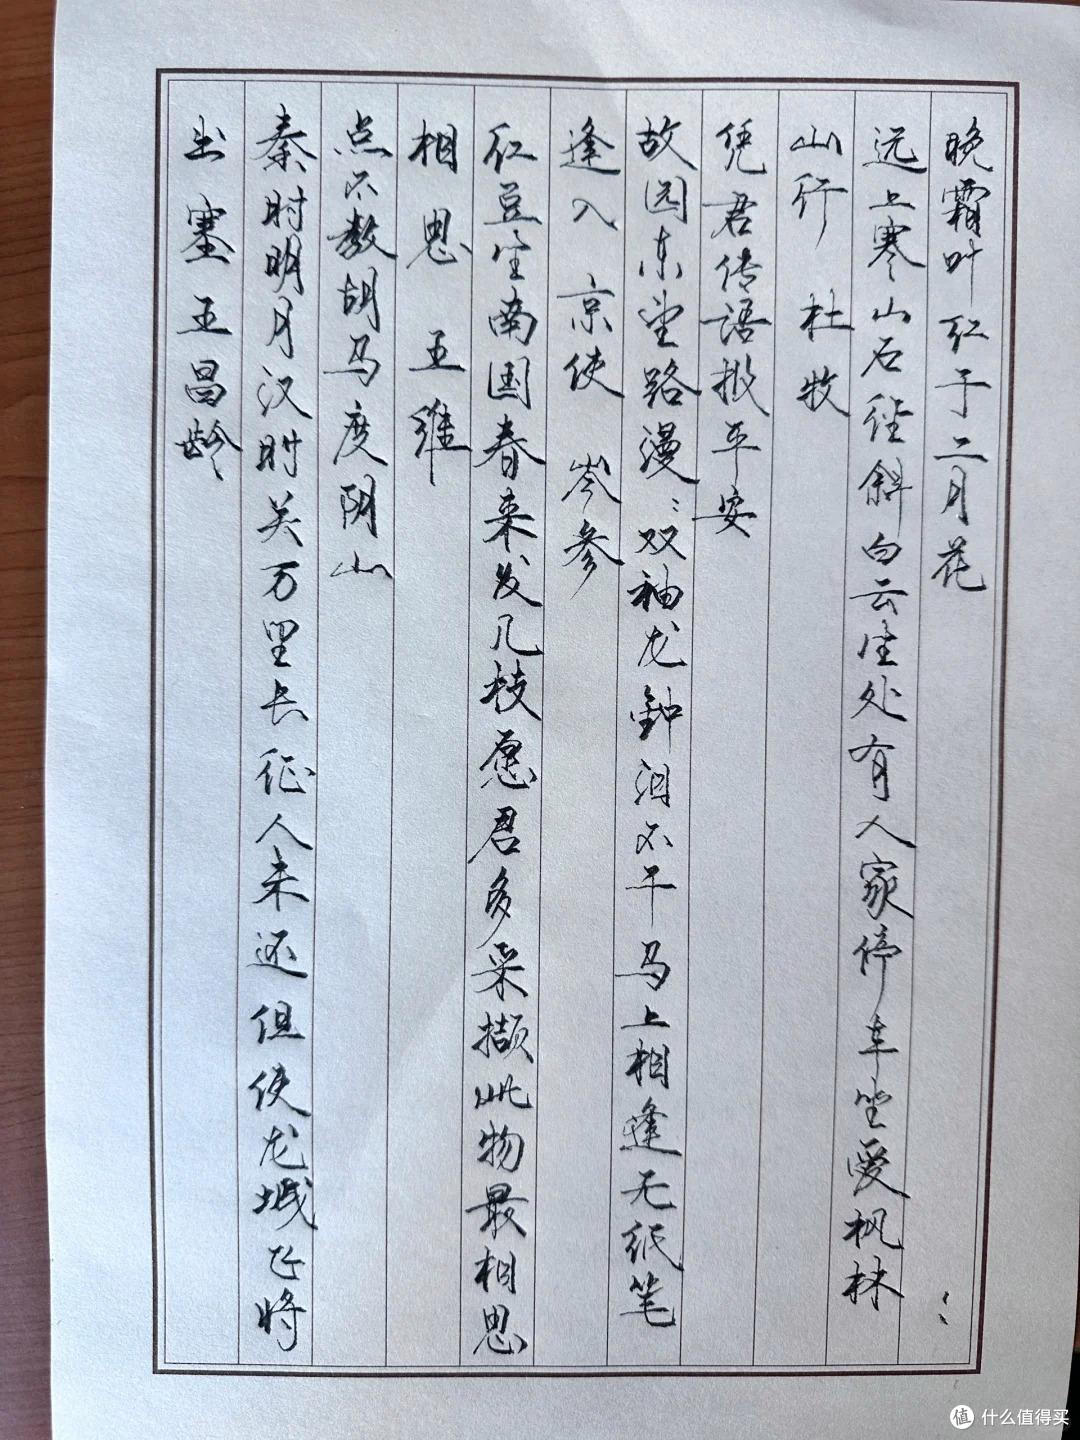 出塞 王昌龄
秦时明月汉时关万里长征人未还但使龙城飞将
点不教胡马度阴山
相思 王维
红豆生南国春来发几枝愿君多采撷此物最相思
逢入京使 岑参
故园东望路漫：双袖龙钟泪不干马上相逢无纸笔
凭君传語报平安
山行 杜牧
远上寒山石径斜白云生处有人家停车坐爱枫林
晚霜叶红于二月花
值 什么值得买